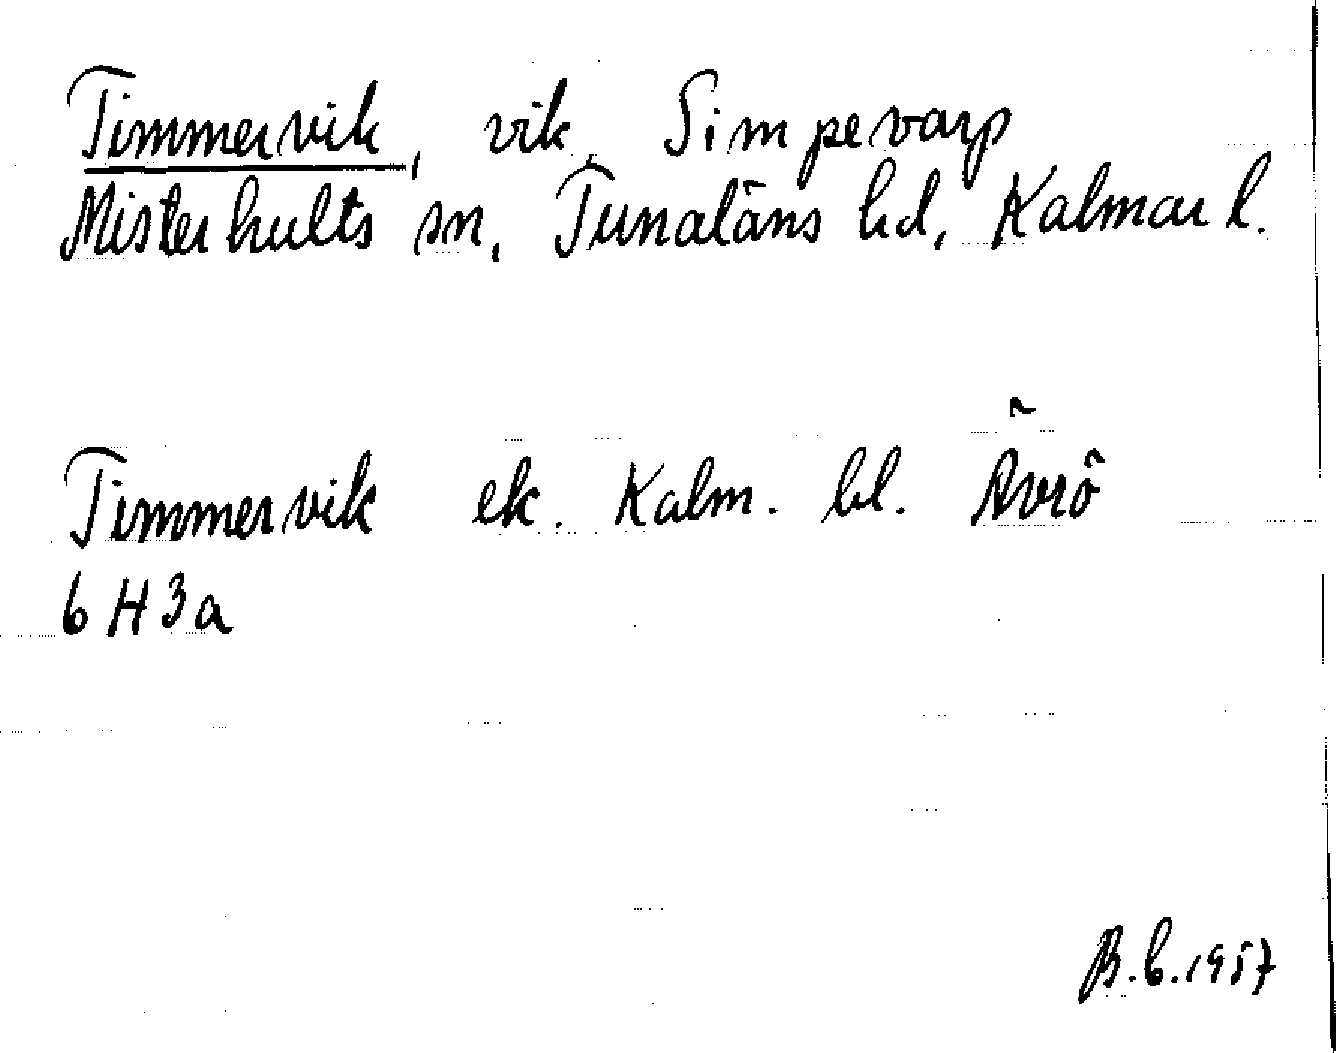 Timmervik, vik, Simpevarp
Misterhults sn, Tunaläns hd, Kalmar l.
Timmervik ek. Kalm. bl. Ävrö
6 H 3 a
B.b.1957